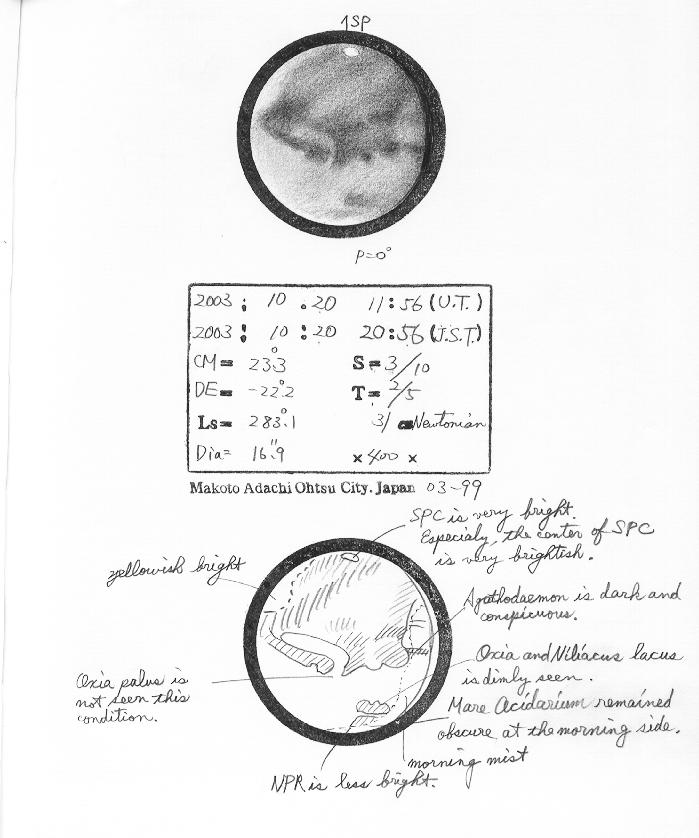 ↑SP
P=0°
2003 : 10 . 20 11:56 (U.T.)
2003 : 10 : 20 20:56 (J.S.T.)
CM= 23°.3 S=3/10
DE= -22°.2 T=2/5
Ls= 283°.1 31 cm Newtonian
Dia= 16".9 ×400 ×
Makoto Adachi Ohtsu City. Japan 03-99
SPC is very bright.
Especialy, the center of SPC
is very brightish.
yellowish bright
Agathodaemon is dark and
conspicuous.
Oxia and Niliacus lacus
is dimly seen.
Oxia palus is
not seen this
condition.
Mare Acidarium remained
obscure at the morning side.
morning mist
NPR is less bright.